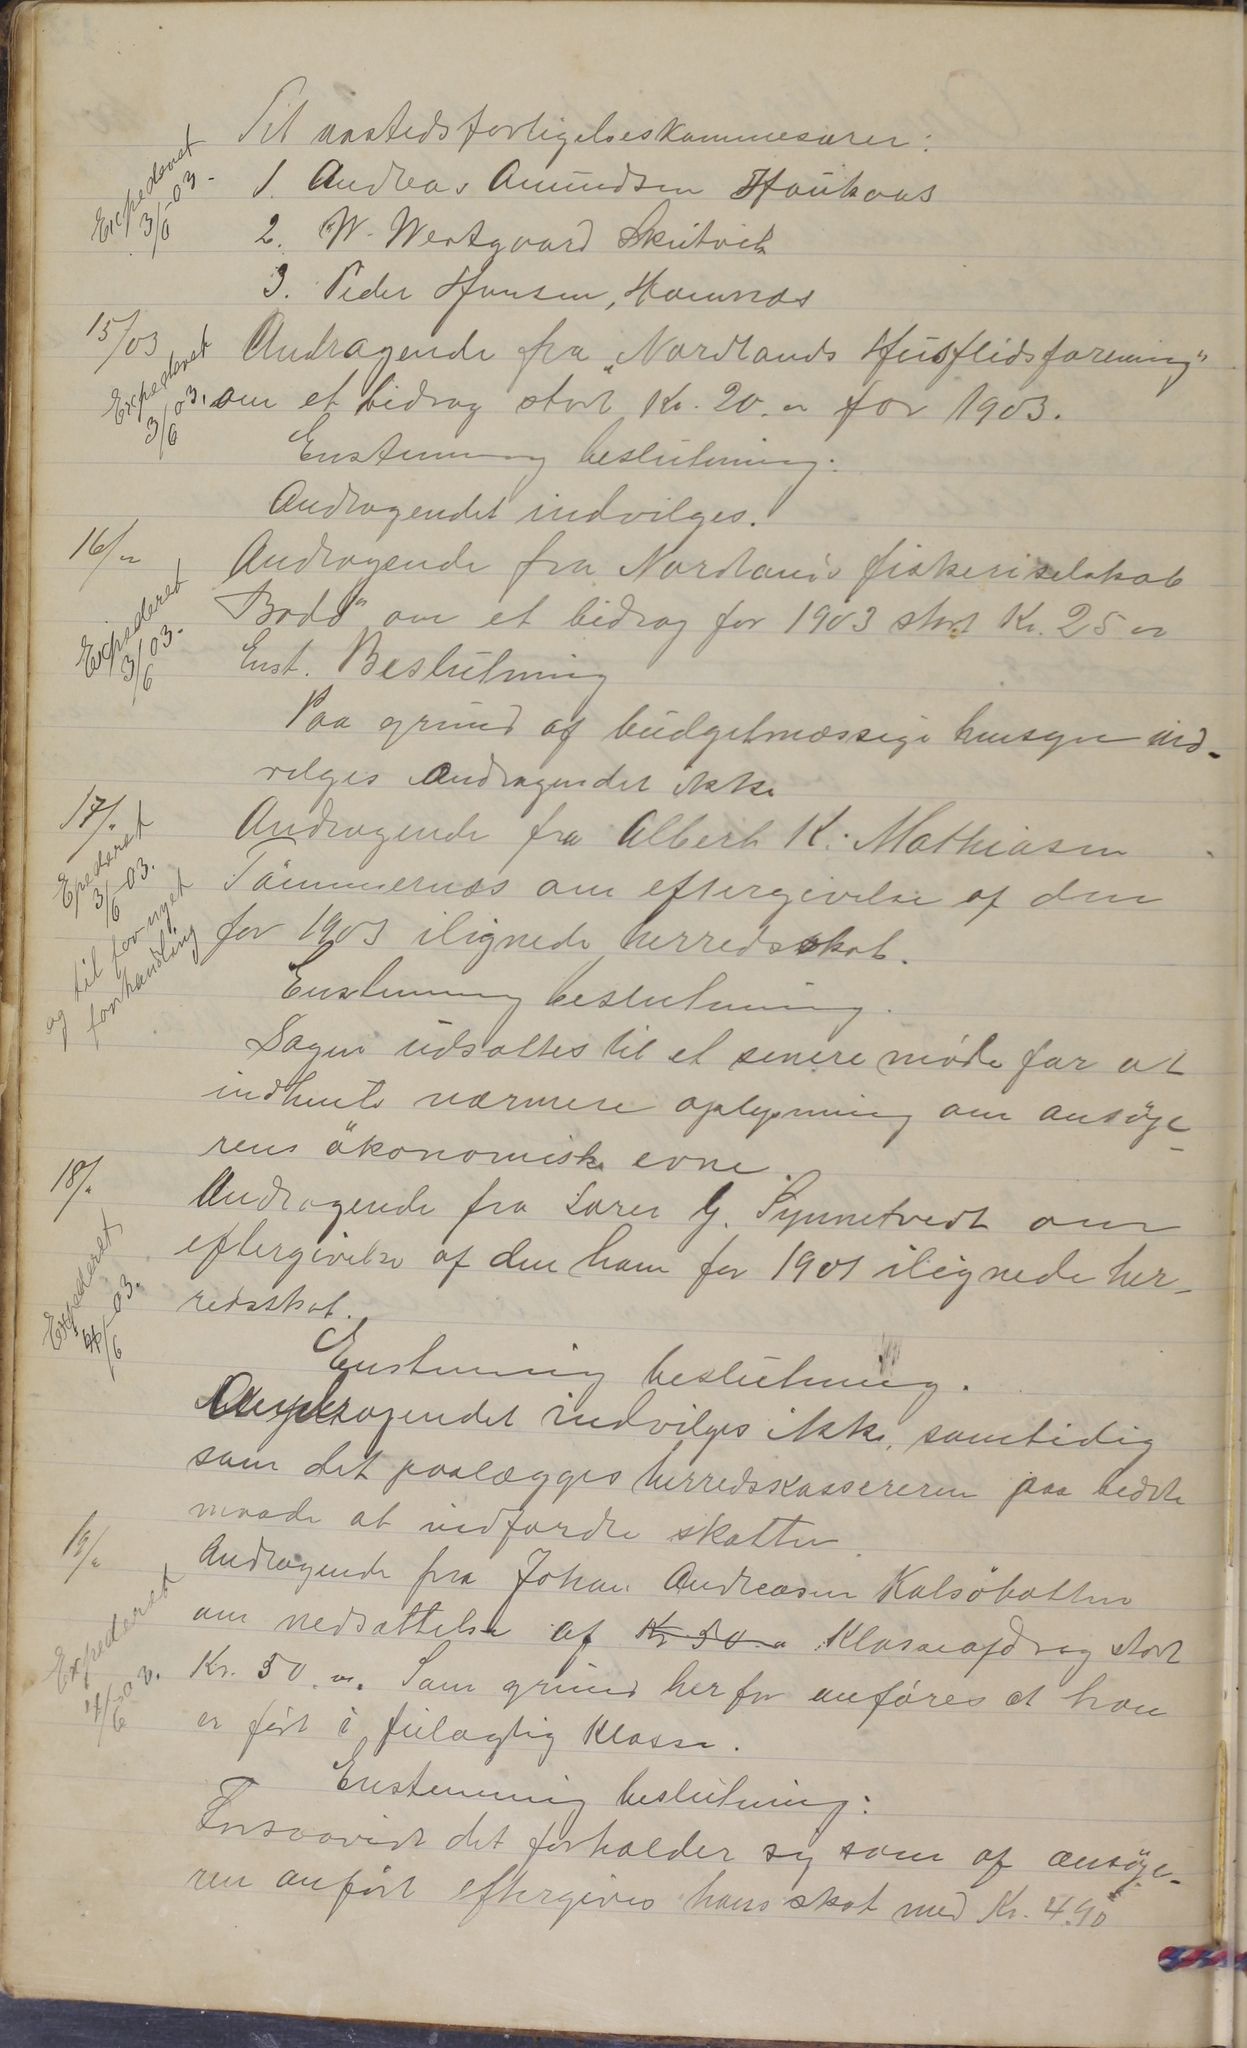 Til aastedsforligelseskommesærer:
Expederet
3/6-03-
1. Andreas Amundsen Haukaas
2. W. Westgaard Skutvik
3. Peder Hansen, Hamnæs
15/03
Andragende fra „Nordlands Husflidsforening"
Expederet
3/6 03.
om et bidrag stort Kr. 20.00 for 1903.
Enstemmig beslutning:
Andragendet indvilges.
16/"
Andragende fra Nordlands fiskeriselskab
Expederet
3/6 03.
Bodö" om et bidrag for 1903 stort Kr. 25 00
Enst. Beslutning
Paa grund af budgetmæssige hensyn ind-
vilges andragendet ikke
17/"
Andragende fra Albert K. Mathiasen
Epederet
3/6-03.
og til fornyet
forhandling
Tömmernæs om eftergivelse af den
for 1903 ilignede herredsskat.
Enstemmig beslutning.
Sagen udsættes til et senere møde for at
indhente nærmere oplysning om ansöge-
rens ökonomiske evne.
18/"
Andragende fra Lorer G. Synnetvedt om
Expederet
4/6-03.
eftergivelse af den ham for 1901 ilignede her-
redsskat.
Enstemmig beslutning.
Andragendet indvilges ikke, samtidig
som det paalægges herredskassereren paa bedste
maade at indfordre skatten.
19/"
Andragende fra Johan Andreasen Kalsöbotten
Expederet
4/6-03.
om nedsættelse af Kr 50 00 Klassefradrag stort
Kr. 50.00. Som grund herfor anföres at han
er fört i feilagtig Klasse.
Enstemmig beslutning:
Forsaavidt det forholder sig som af ansöge-
ren anfört eftergives hans skat med Kr. 4.90